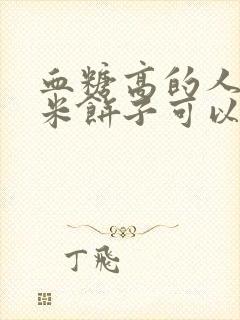 血糖高的人
米餅子可以
丁飛